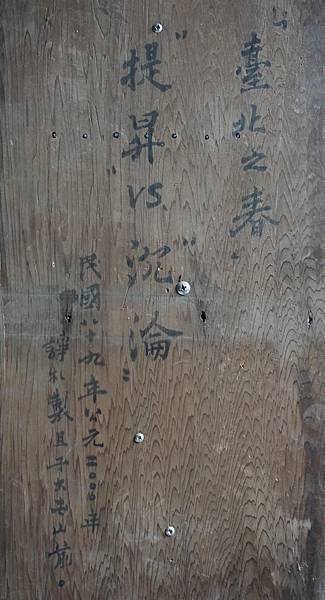 "臺北之春"
"提昇"VS."沉淪"
民國八十九年公元二〇〇〇年
製且于大屯山前。